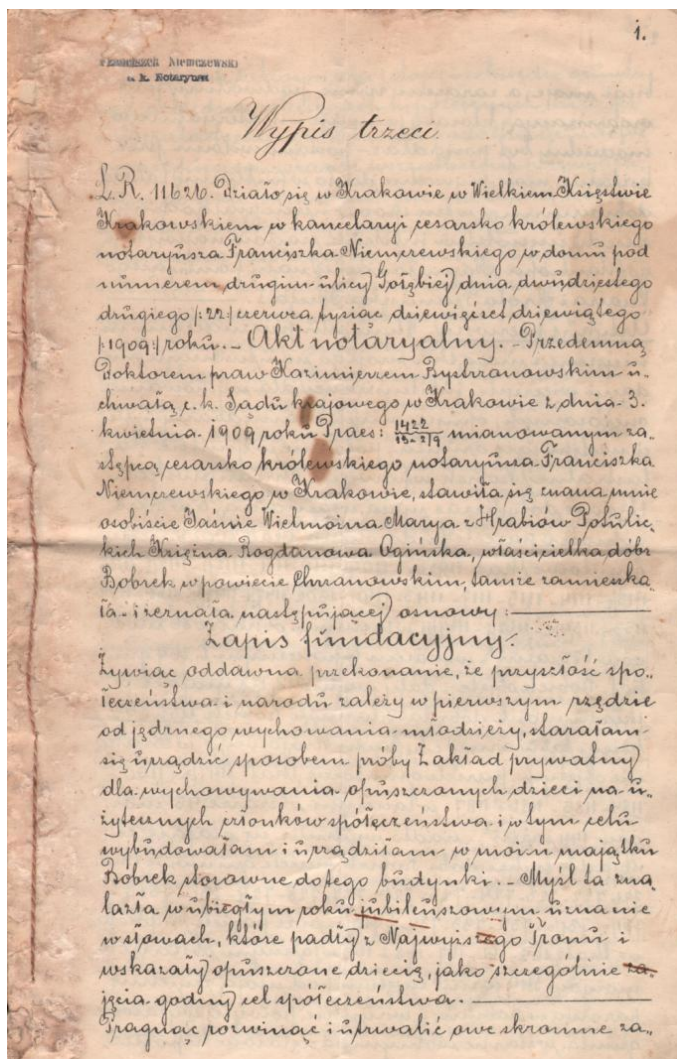 1.
Franciszek Niemczewski
c. k. Notaryusz
Wypis trzeci.
L. R. 11626. Działo się w Krakowie w Wielkiem Księstwie
Krakowskiem w kancelaryi cesarsko królewskiego
notaryusza Franciszka Niemczewskiego w domu pod
numerem drugim ulicy Gołębiej dnia dwudziestego
drugiego /:22:/ czerwca tysiąc dziewięćset dziewiątego
/:1909:/ roku. – Akt notaryalny. – Przedemną
Doktorem praw Kazimierzem Bystrzanowskim u-
chwałą c. k. Sądu krajowego w Krakowie z dnia 3.
kwietnia 1909 roku Praes: 1422/13-2/9 mianowanym za-
stępcą cesarsko królewskiego notaryusza Franciszka
Niemczewskiego w Krakowie, stawiła się znana mnie
osobiście Jaśnie Wielmożna Marya z Hrabiów Potulic-
kich Księżna Bogdanowa Ogińska, właścicielka dóbr
Bobrek w powiecie Chrzanowskim, tamże zamieszka-
ła i zeznała następującej osnowy:
Zapis fundacyjny.
Żywiąc oddawna przekonanie, że przyszłość spo-
łeczeństwa i narodu zależy w pierwszym rzędzie
od jędrnego wychowania młodzieży, starałam
się urządzić sposobem próby Zakład prywatny
dla wychowywania opuszczonych dzieci na u-
żytecznych członków społeczeństwa i w tym celu
wybudowałam i urządziłam w moim majątku
Bobrek stosowne do tego budynki. – Myśl ta zna-
lazła w ubiegłym roku jubileuszowym uznanie
w słowach, które padły z Najwyższego Tronu i
wskazały opuszczone dziecię, jako szczególnie za-
jęcia godny cel społeczeństwa.
Pragnąc rozwinąć i utrwalić owe skromne za-